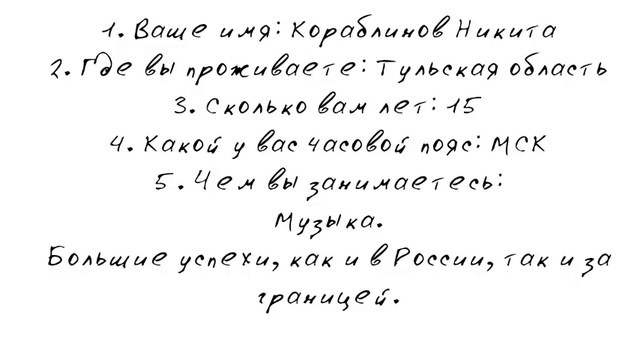 1. Ваше имя: Кораблинов Никита
2. Где вы проживаете: Тульская область
3. Сколько вам лет: 15
4. Какой у вас часовой пояс: МСК
5. Чем вы занимаетесь:
Музыка.
Большие успехи, как и в России, так и за
границей.